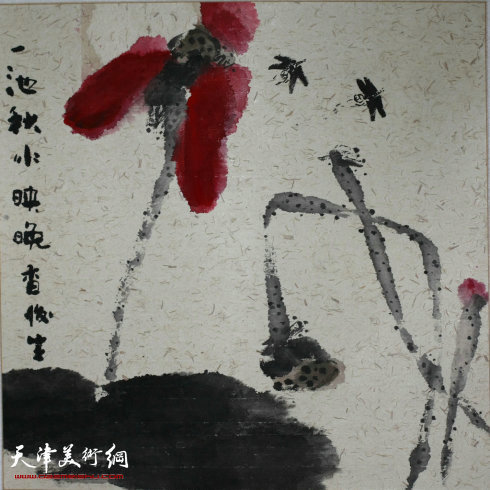 一池秋水映晚香俊生
天津美術網